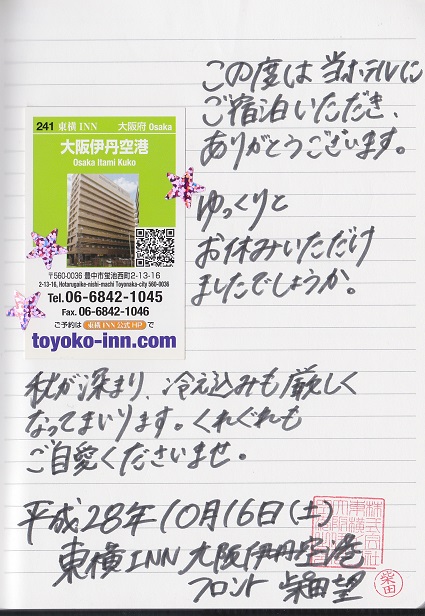 この度は当ホテルに
ご宿泊いただき、
ありがとうございます。
ゆっくりと
お休みいただけ
ましたでしょうか。
241 東横INN 大阪府 Osaka
大阪伊丹空港
Osaka Itami Kuko
〒560-0036 豊中市蛍池西町2-13-16
2-13-16, Hotarugaike-nishi-machi Toyonaka-city 560-0036
Tel.06-6842-1045
Fax. 06-6842-1046
ご予約は 東横INN 公式HP で
toyoko-inn.com
秋が深まり、冷え込みも厳しく
なってまいります。くれぐれも
ご自愛くださいませ。
平成28年10月16日(土)
東横INN 大阪伊丹空港
フロント 柴田望
柴田